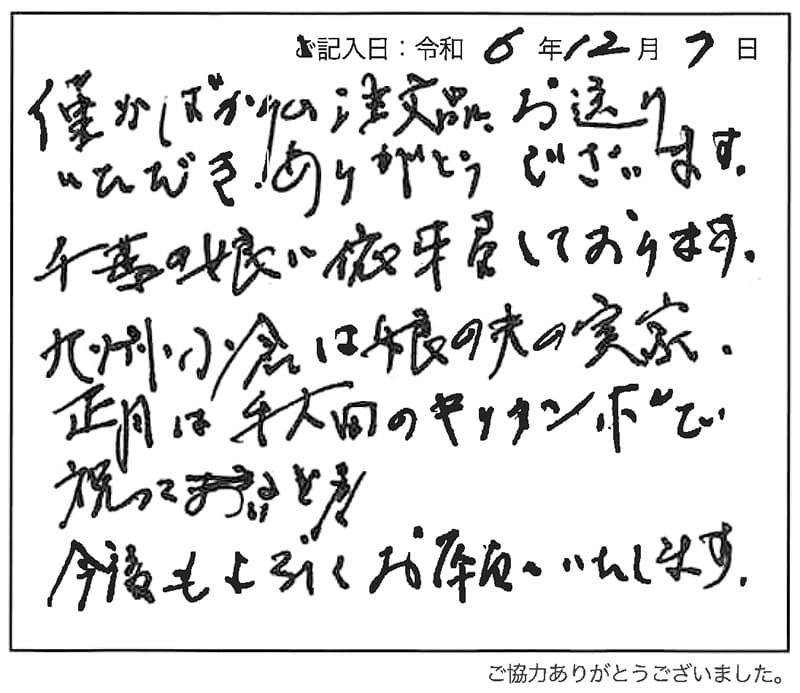 ご記入日：令和 6 年 12 月 7 日
僅かばかりの注文品、お送り
いただき、ありがとうございます。
千葉の娘に依 しております。
九州小倉は娘の夫の実家。
正月は のキリタンポで
祝って
今後もよ くお願いいたします。
ご協力ありがとうございました。